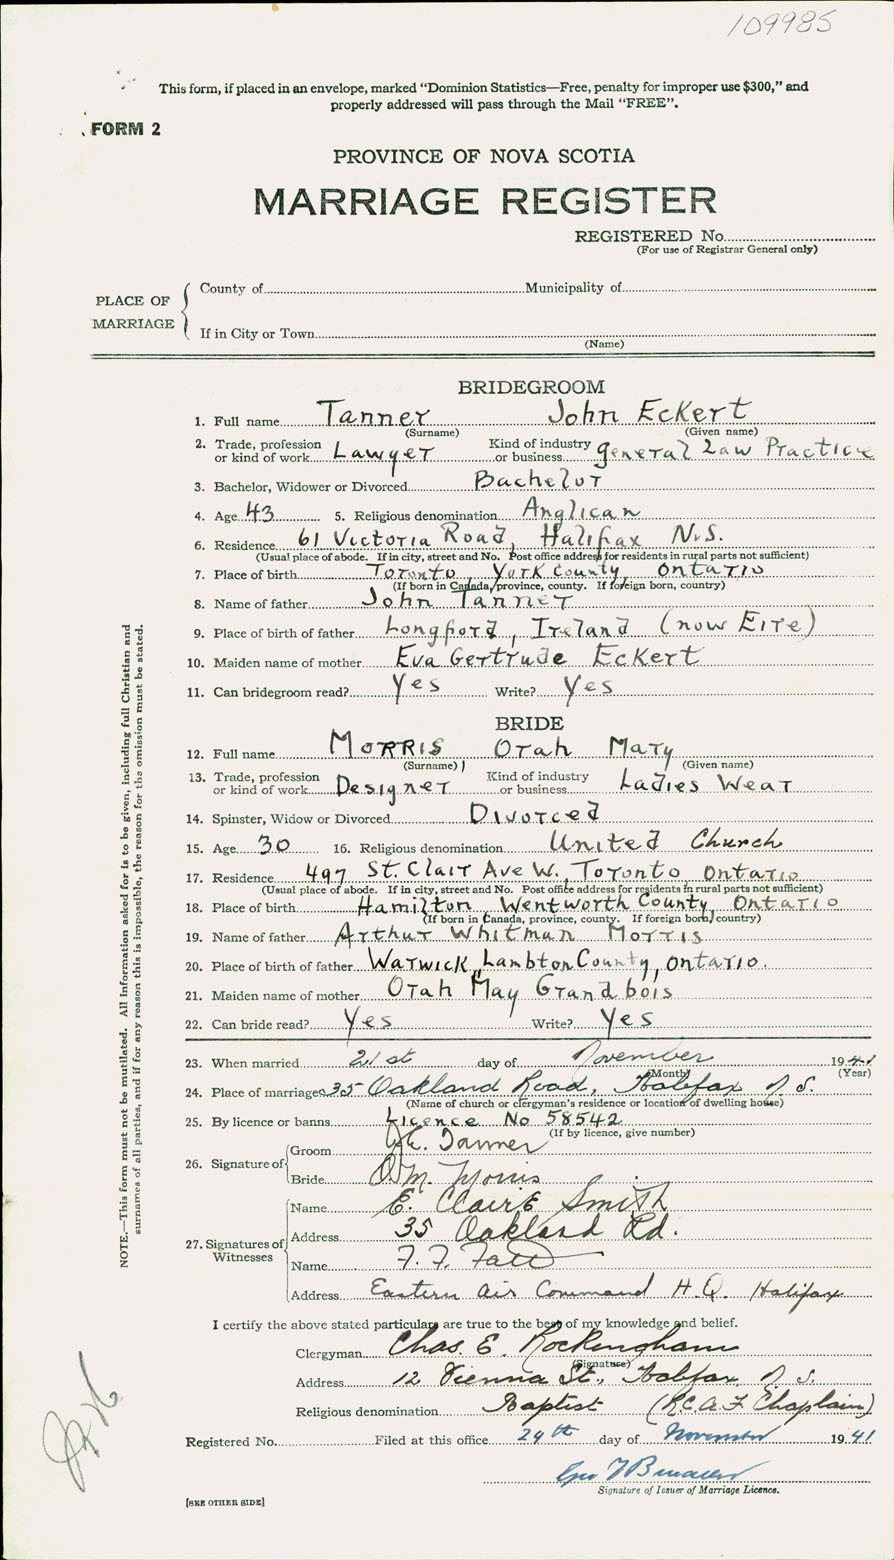 109985
This form, if placed in an envelope, marked “Dominion Statistics—Free, penalty for improper use $300,” and
properly addressed will pass through the Mail “FREE”.
FORM 2
PROVINCE OF NOVA SCOTIA
MARRIAGE REGISTER
REGISTERED No.
(For use of Registrar General only)
PLACE OF MARRIAGE
County of Municipality of
If in City or Town
(Name)
BRIDEGROOM
1. Full name Tanner John Eckert
(Surname) (Given name)
2. Trade, profession or kind of work Lawyer Kind of industry or business general Law Practice
3. Bachelor, Widower or Divorced Bachelor
4. Age 43 5. Religious denomination Anglican
6. Residence 61 Victoria Road, Halifax N.S.
(Usual place of abode. If in city, street and No. Post office address for residents in rural parts not sufficient)
7. Place of birth Toronto, York County, Ontario
(If born in Canada, province, county. If foreign born, country)
8. Name of father John Tanner
9. Place of birth of father Longford, Ireland (now Eire)
10. Maiden name of mother Eva Gertrude Eckert
11. Can bridegroom read? Yes Write? Yes
BRIDE
12. Full name MORRIS, Orah Mary
(Surname) (Given name)
13. Trade, profession or kind of work Designer Kind of industry or business Ladies Wear
14. Spinster, Widow or Divorced Divorced
15. Age 30 16. Religious denomination United Church
17. Residence 497 St. Clair Ave W., Toronto, Ontario
(Usual place of abode. If in city, street and No. Post office address for residents in rural parts not sufficient)
18. Place of birth Hamilton, Wentworth County, Ontario
(If born in Canada, province, county. If foreign born, country)
19. Name of father Arthur Whitman Morris
20. Place of birth of father Warwick, Lambton County, Ontario.
21. Maiden name of mother Orah May Grandbois
22. Can bride read? Yes Write? Yes
23. When married 21st day of November 1941
(Month) (Year)
24. Place of marriage 35 Oakland Road, Halifax N.S.
(Name of church or clergyman's residence or location of dwelling house)
25. By licence or banns Licence No 58542
(If by licence, give number)
26. Signature of Groom J.E. Tanner
Bride O.M. Morris
27. Signatures of Witnesses
Name E. Claire Smith
Address 35 Oakland Rd.
Name F. F.
Address Eastern Air Command H.Q. Halifax
I certify the above stated particulars are true to the best of my knowledge and belief.
Clergyman Chas. E. Rockingham
(Signature)
Address 12 Vienna St., Halifax N.S.
Religious denomination Baptist (R.C.A.F. Chaplain)
Registered No. Filed at this office 24th day of November 1941
Signature of Issuer of Marriage Licence.
[SEE OTHER SIDE]
NOTE.—This form must not be mutilated. All information asked for is to be given, including full Christian and
surnames of all parties, and if for any reason this is impossible, the reason for the omission must be stated.